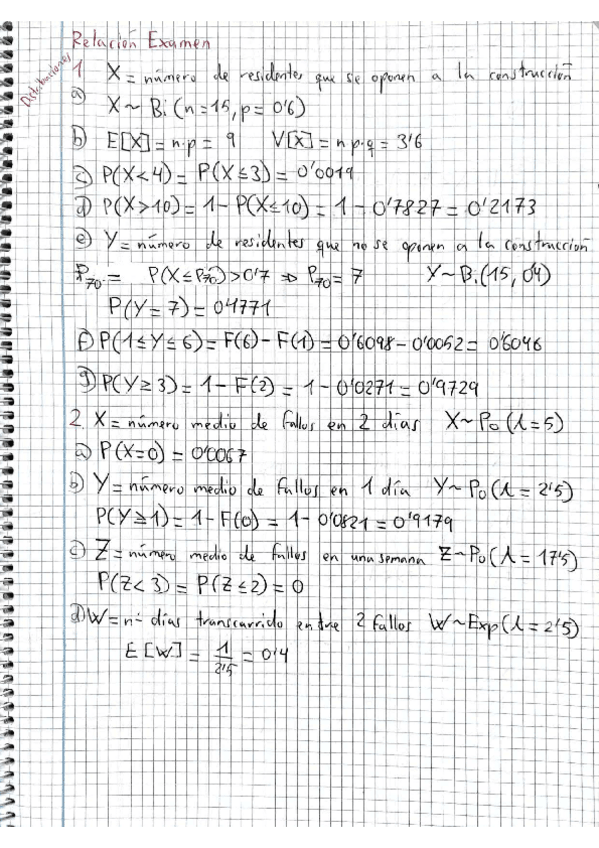 Relación Examen
Distribuciones
1 X = número de residentes que se oponen a la construcción
a) X ~ Bi (n=15, p= 0'6)
b) E[X] = n·p = 9 V[X] = n p·q = 3'6
c) P(X<4) = P(X≤3) = 0'0019
d) P(X>10) = 1 - P(X≤10) = 1 - 0'7827 = 0'2173
e) Y = número de residentes que no se oponen a la construccion
P70 = P(X ≤ P70) > 0'7 ⇒ P70 = 7 Y ~ Bi(15, 0'4)
P(Y = 7) = 0'1771
f) P(1 ≤ Y ≤ 6) = F(6) - F(1) = 0'6098 - 0'0052 = 0'6046
g) P(Y ≥ 3) = 1 - F(2) = 1 - 0'0271 = 0'9729
2. X = número medio de fallos en 2 días X ~ Po (λ = 5)
a) P(X=0) = 0'0067
b) Y = número medio de fallos en 1 día Y ~ Po (λ = 2'5)
P(Y ≥ 1) = 1 - F(0) = 1 - 0'0821 = 0'9179
c) Z = número medio de fallos en una semana Z ~ Po (λ = 17'5)
P(Z < 3) = P(Z ≤ 2) = 0
d) W = nº días transcurrido entre 2 fallos W ~ Exp (λ = 2'5)
E[W] = 1/2'5 = 0'4